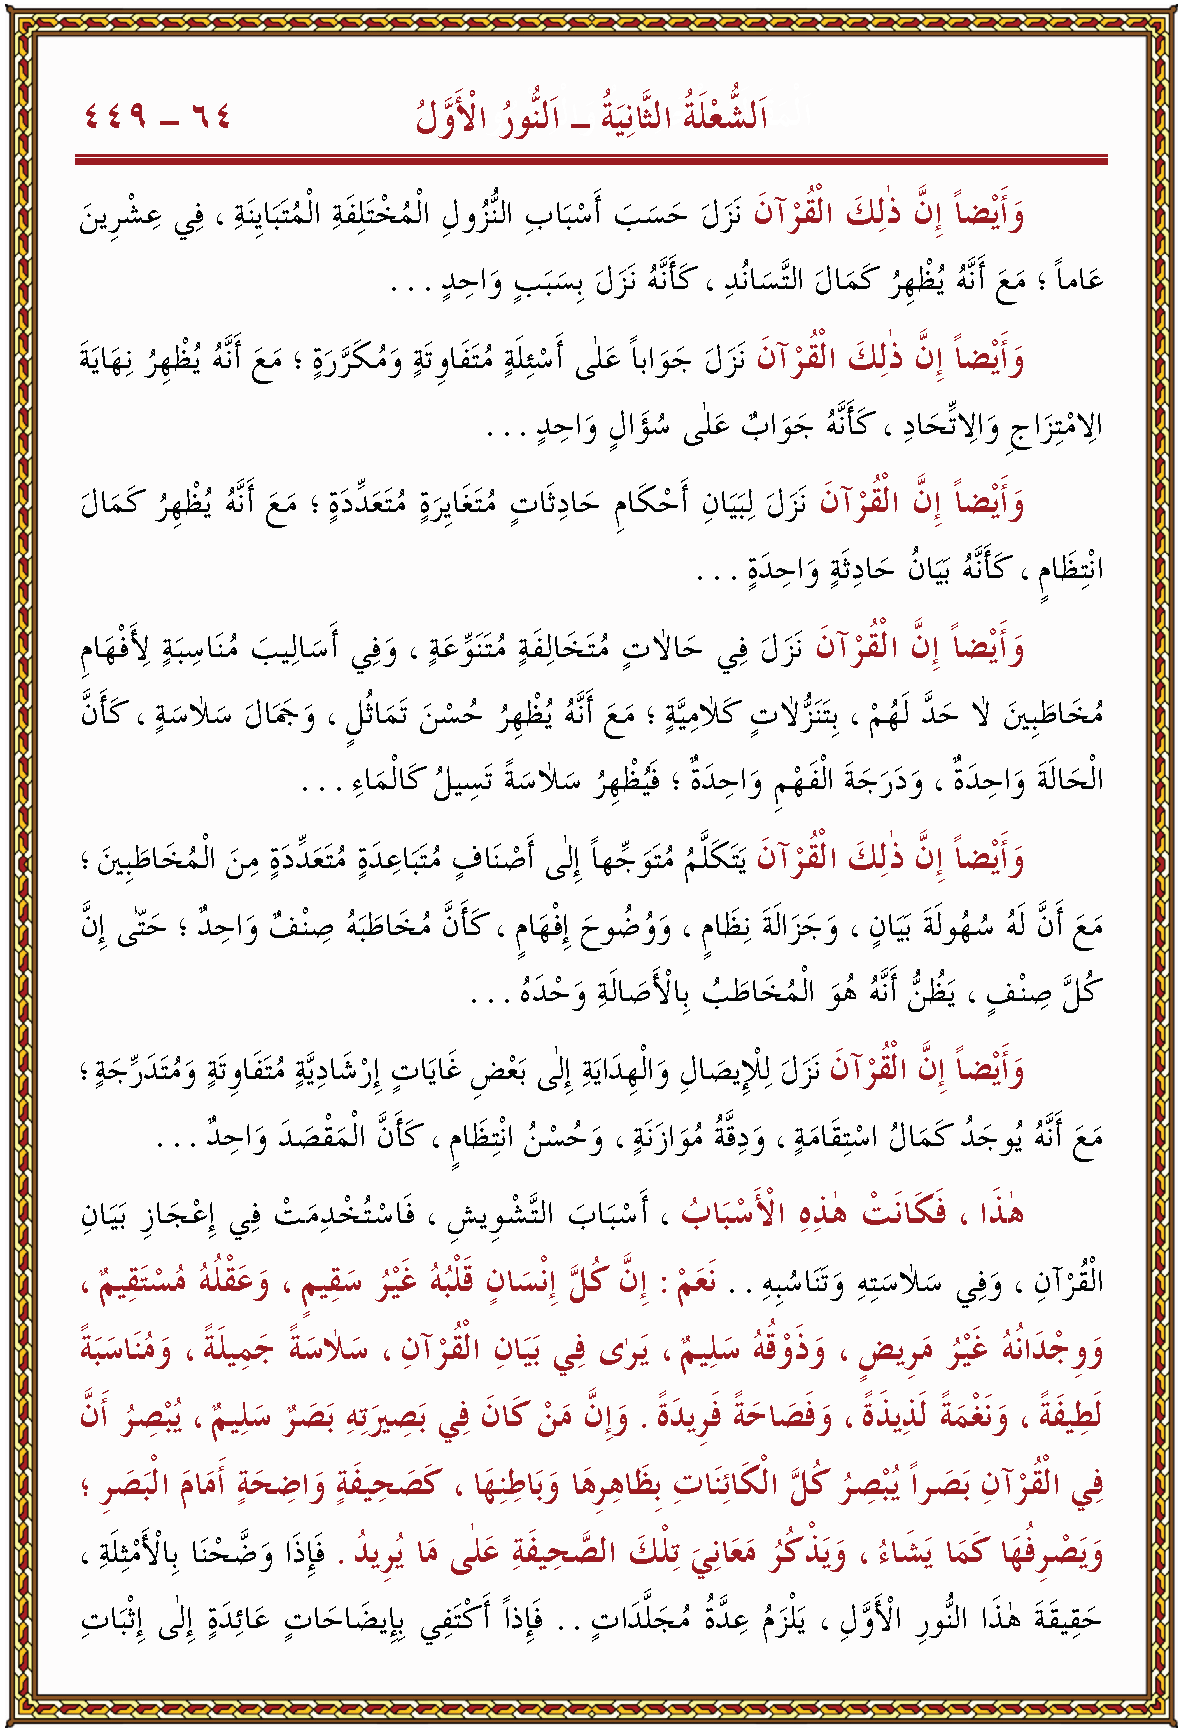 اَلشُّعْلَةُ الثَّانِيَةُ ــ اَلنُّورُ الْأَوَّلُ ٦٤ ــ ٤٤٩
وَأَيْضاً إِنَّ ذٰلِكَ الْقُرْآنَ نَزَلَ حَسَبَ أَسْبَابِ النُّزُولِ الْمُخْتَلِفَةِ الْمُتَبَايِنَةِ ، فِي عِشْرِينَ
عَاماً ؛ مَعَ أَنَّهُ يُظْهِرُ كَمَالَ التَّسَانُدِ ، كَأَنَّهُ نَزَلَ بِسَبَبٍ وَاحِدٍ . . .
وَأَيْضاً إِنَّ ذٰلِكَ الْقُرْآنَ نَزَلَ جَوَاباً عَلٰى أَسْئِلَةٍ مُتَفَاوِتَةٍ وَمُكَرَّرَةٍ ؛ مَعَ أَنَّهُ يُظْهِرُ نِهَايَةَ
الِامْتِزَاجِ وَالِاتِّحَادِ ، كَأَنَّهُ جَوَابٌ عَلٰى سُؤَالٍ وَاحِدٍ . . .
وَأَيْضاً إِنَّ الْقُرْآنَ نَزَلَ لِبَيَانِ أَحْكَامِ حَادِثَاتٍ مُتَغَايِرَةٍ مُتَعَدِّدَةٍ ؛ مَعَ أَنَّهُ يُظْهِرُ كَمَالَ
انْتِظَامٍ ، كَأَنَّهُ بَيَانُ حَادِثَةٍ وَاحِدَةٍ . . .
وَأَيْضاً إِنَّ الْقُرْآنَ نَزَلَ فِي حَالَاتٍ مُتَخَالِفَةٍ مُتَنَوِّعَةٍ ، وَفِي أَسَالِيبَ مُنَاسِبَةٍ لِأَفْهَامِ
مُخَاطَبِينَ لَا حَدَّ لَهُمْ ، بِتَنَزُّلَاتٍ كَلَامِيَّةٍ ؛ مَعَ أَنَّهُ يُظْهِرُ حُسْنَ تَمَاثُلٍ ، وَجَمَالَ سَلَاسَةٍ ، كَأَنَّ
الْحَالَةَ وَاحِدَةٌ ، وَدَرَجَةَ الْفَهْمِ وَاحِدَةٌ ؛ فَيُظْهِرُ سَلَاسَةً تَسِيلُ كَالْمَاءِ . . .
وَأَيْضاً إِنَّ ذٰلِكَ الْقُرْآنَ يَتَكَلَّمُ مُتَوَجِّهاً إِلٰى أَصْنَافٍ مُتَبَاعِدَةٍ مُتَعَدِّدَةٍ مِنَ الْمُخَاطَبِينَ ؛
مَعَ أَنَّ لَهُ سُهُولَةَ بَيَانٍ ، وَجَزَالَةَ نِظَامٍ ، وَوُضُوحَ إِفْهَامٍ ، كَأَنَّ مُخَاطَبَهُ صِنْفٌ وَاحِدٌ ؛ حَتّٰى إِنَّ
كُلَّ صِنْفٍ ، يَظُنُّ أَنَّهُ هُوَ الْمُخَاطَبُ بِالْأَصَالَةِ وَحْدَهُ . . .
وَأَيْضاً إِنَّ الْقُرْآنَ نَزَلَ لِلْإِيصَالِ وَالْهِدَايَةِ إِلٰى بَعْضِ غَايَاتٍ إِرْشَادِيَّةٍ مُتَفَاوِتَةٍ وَمُتَدَرِّجَةٍ ؛
مَعَ أَنَّهُ يُوجَدُ كَمَالُ اسْتِقَامَةٍ ، وَدِقَّةُ مُوَازَنَةٍ ، وَحُسْنُ انْتِظَامٍ ، كَأَنَّ الْمَقْصَدَ وَاحِدٌ . . .
هٰذَا ، فَكَانَتْ هٰذِهِ الْأَسْبَابُ ، أَسْبَابَ التَّشْوِيشِ ، فَاسْتُخْدِمَتْ فِي إِعْجَازِ بَيَانِ
الْقُرْآنِ ، وَفِي سَلَاسَتِهِ وَتَنَاسُبِهِ . . نَعَمْ : إِنَّ كُلَّ إِنْسَانٍ قَلْبُهُ غَيْرُ سَقِيمٍ ، وَعَقْلُهُ مُسْتَقِيمٌ ،
وَوِجْدَانُهُ غَيْرُ مَرِيضٍ ، وَذَوْقُهُ سَلِيمٌ ، يَرٰى فِي بَيَانِ الْقُرْآنِ ، سَلَاسَةً جَمِيلَةً ، وَمُنَاسَبَةً
لَطِيفَةً ، وَنَغْمَةً لَذِيذَةً ، وَفَصَاحَةً فَرِيدَةً . وَإِنَّ مَنْ كَانَ فِي بَصِيرَتِهِ بَصَرٌ سَلِيمٌ ، يُبْصِرُ أَنَّ
فِي الْقُرْآنِ بَصَراً يُبْصِرُ كُلَّ الْكَائِنَاتِ بِظَاهِرِهَا وَبَاطِنِهَا ، كَصَحِيفَةٍ وَاضِحَةٍ أَمَامَ الْبَصَرِ ؛
وَيَصْرِفُهَا كَمَا يَشَاءُ ، وَيَذْكُرُ مَعَانِيَ تِلْكَ الصَّحِيفَةِ عَلٰى مَا يُرِيدُ . فَإِذَا وَضَّحْنَا بِالْأَمْثِلَةِ ،
حَقِيقَةَ هٰذَا النُّورِ الْأَوَّلِ ، يَلْزَمُ عِدَّةُ مُجَلَّدَاتٍ . . فَإِذاً أَكْتَفِي بِإِيضَاحَاتٍ عَائِدَةٍ إِلٰى إِثْبَاتِ